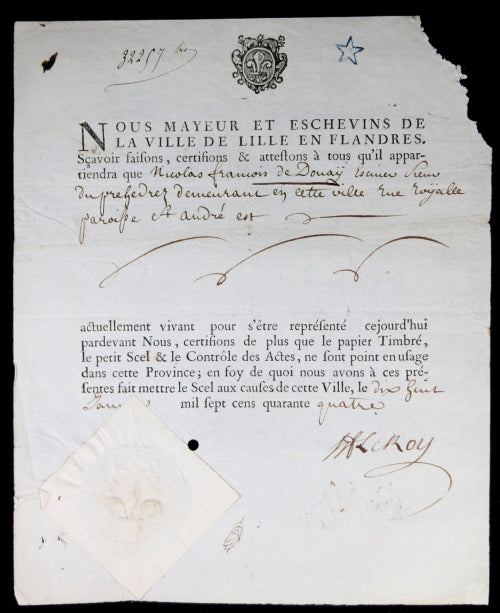 32257 bis
NOUS MAYEUR ET ESCHEVINS DE
LA VILLE DE LILLE EN FLANDRES.
Sçavoir faisons, certifions & attestons à tous qu'il appar-
tiendra que Nicolas francois de Douaÿ Escuier Sieur
du prehedrez demeurant en cette ville Rue Roÿalle
paroisse St andré est
actuellement vivant pour s'être représenté cejourd'hui
pardevant Nous, certifions de plus que le papier Timbré,
le petit Scel & le Contrôle des Actes, ne sont point en usage
dans cette Province; en foy de quoi nous avons à ces pré-
sentes fait mettre le Scel aux causes de cette Ville, le dix huit
mil sept cens quarante quatre
LeRoy